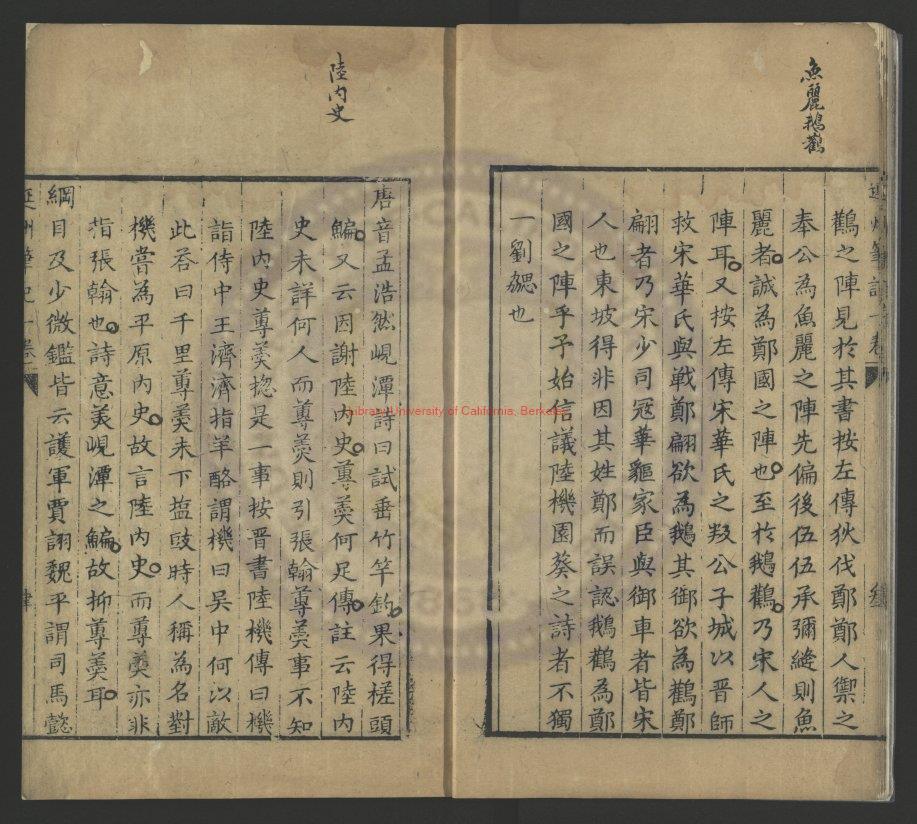 魚麗鵝鸛
鸛之陣見於其書按左傳狄伐鄭鄭人禦之
奉公為魚麗之陣先偏後伍伍承彌縫則魚
麗者誠為鄭國之陣也至於鵝鸛乃宋人之
陣耳又按左傳宋華氏之叛公子城以晉師
救宋華氏與戰鄭翩欲為鵝其御欲為鸛鄭
翩者乃宋少司冦華貙家臣與御車者皆宋
人也東坡得非因其姓鄭而誤認鵝鸛為鄭
國之陣乎予始信議陸機園葵之詩者不獨
一劉勰也
陸內史
唐音孟浩然峴潭詩曰試垂竹竿釣果得槎頭
鯿又云因謝陸內史蓴羮何足傳註云陸內
史未詳何人而蓴羮則引張翰蓴羮事不知
陸內史蓴羮揔是一事按晋書陸機傳曰機
詣侍中王濟濟指羊酪謂機曰吳中何以敵
此荅曰千里蓴羮未下塩豉時人稱為名對
機嘗為平原內史故言陸內史而蓴羮亦非
指張翰也詩意美峴潭之鯿故抑蓴羮耳
綱目及少微鑑皆云護軍賈詡魏平謂司馬懿
Library University of California, Berkeley